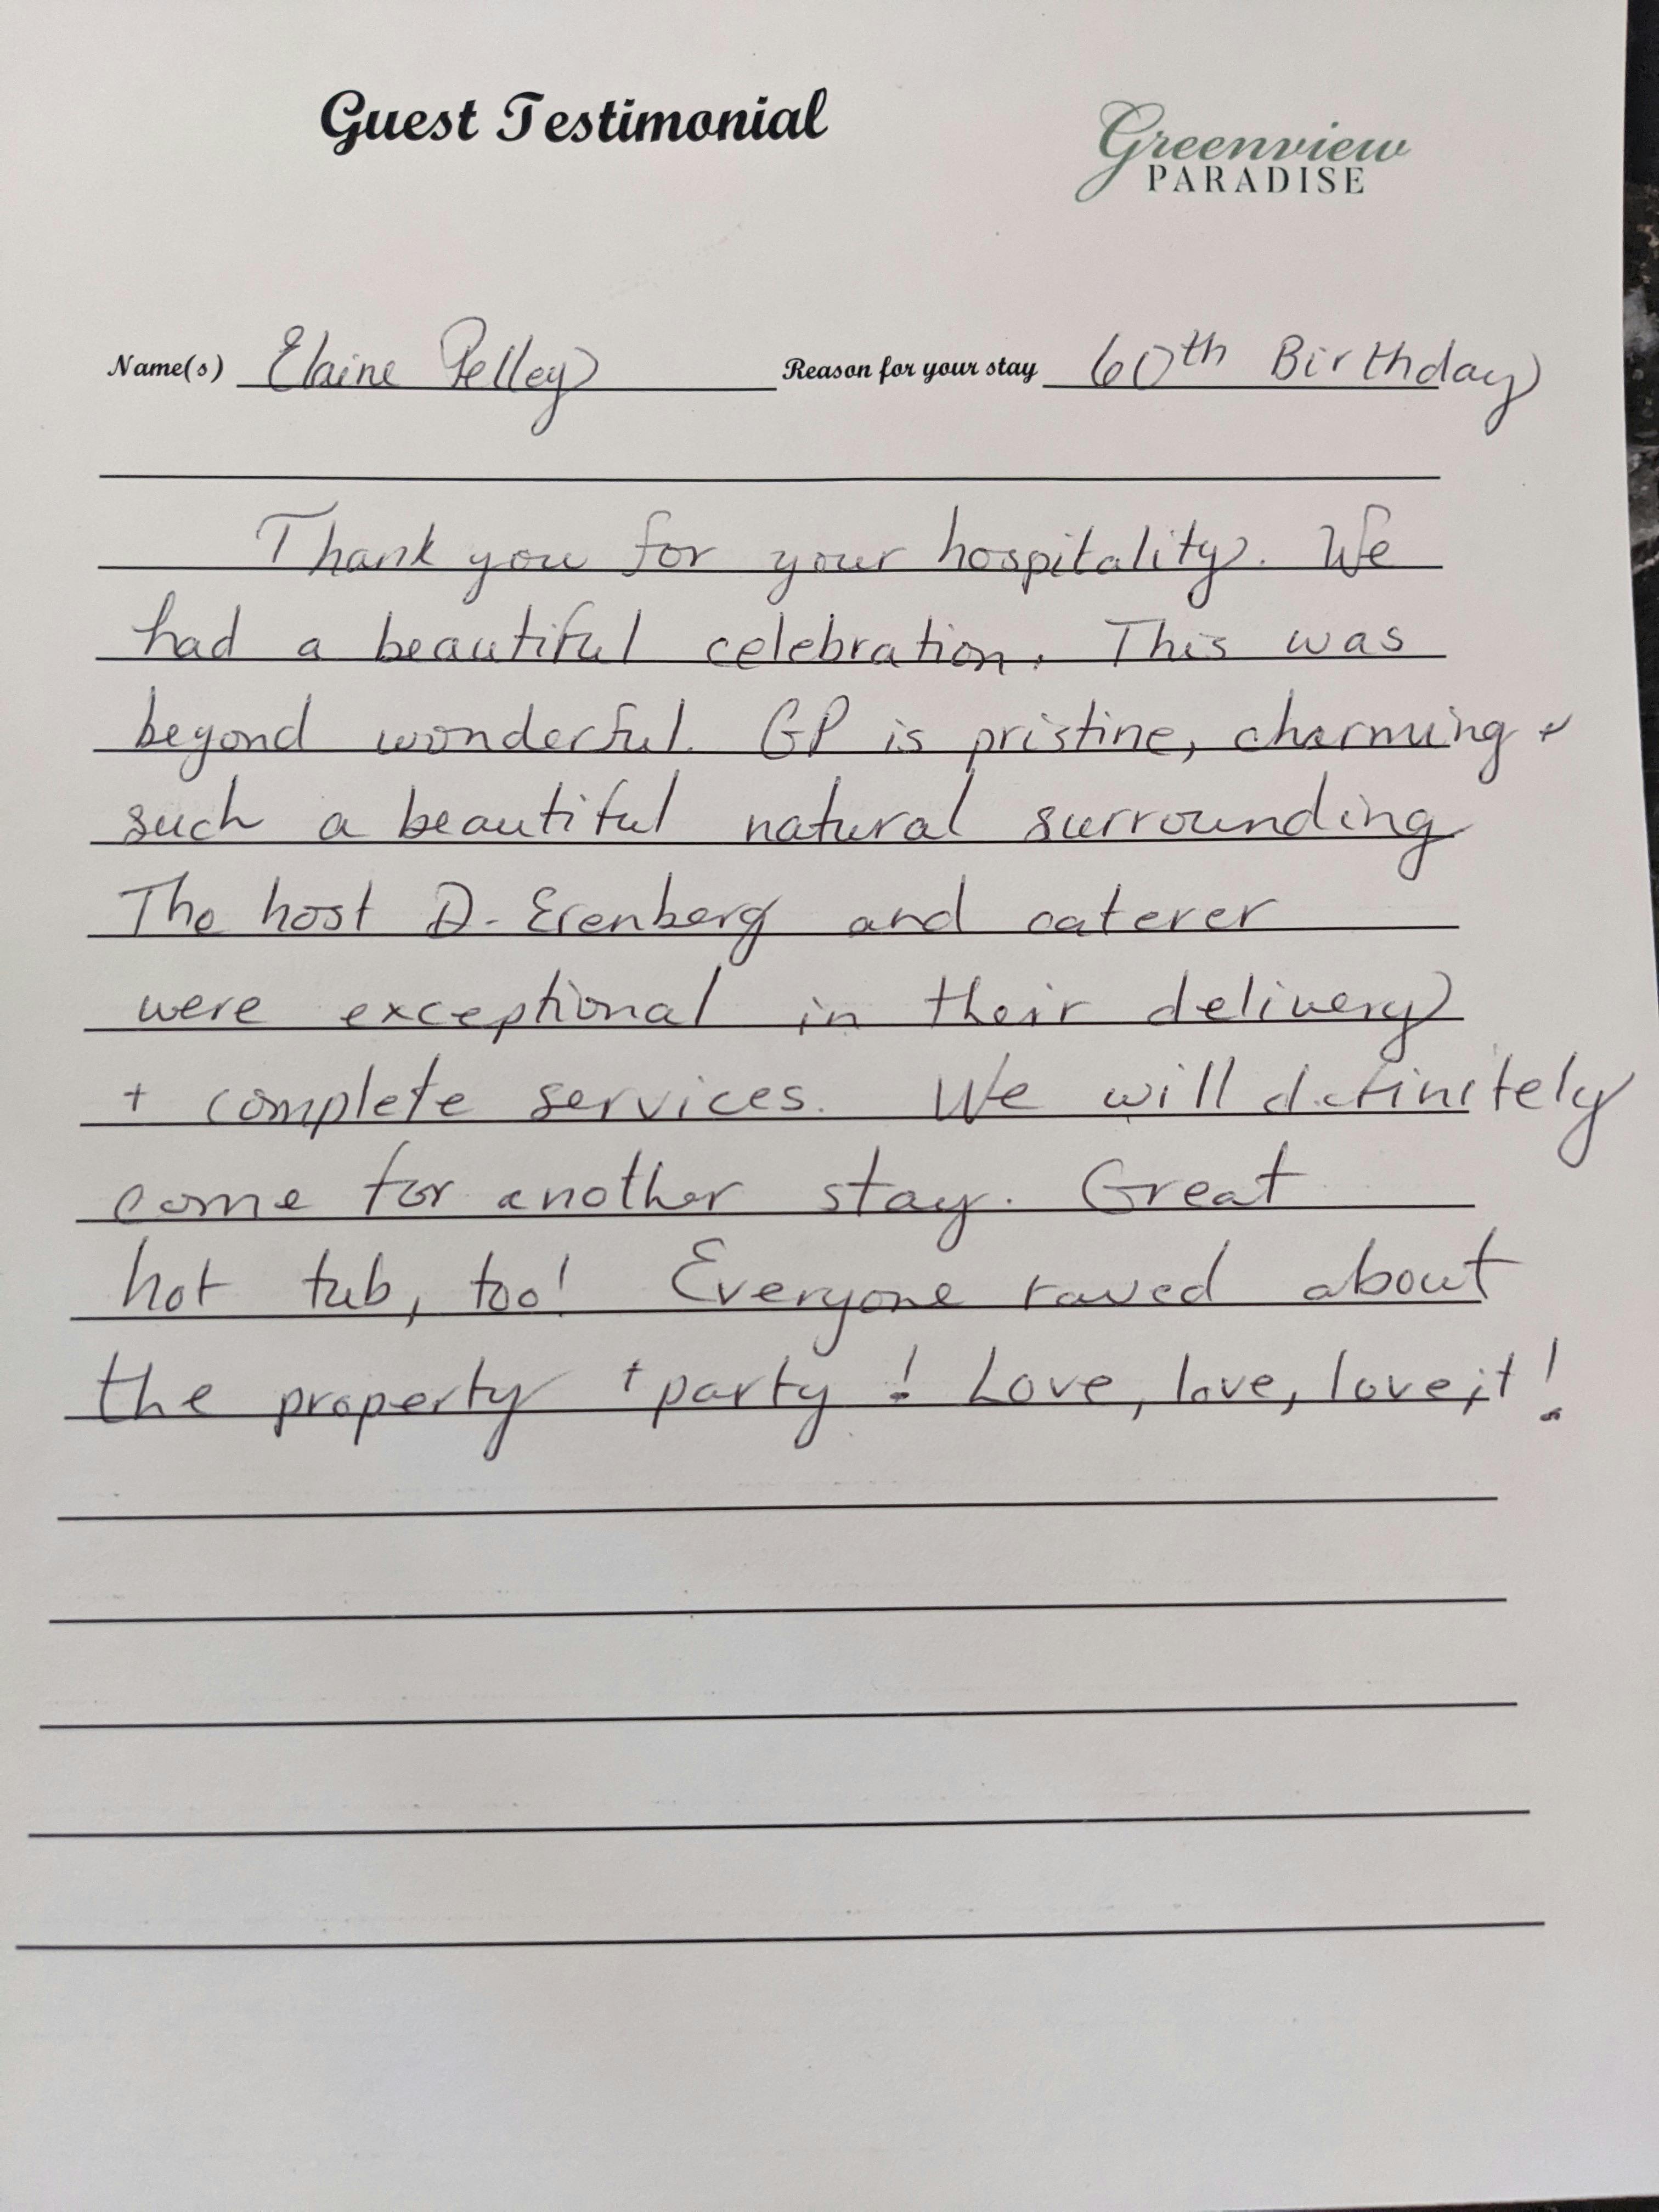 Guest Testimonial
Greenview
PARADISE
Name(s) Elaine Pelley Reason for your stay 60th Birthday
Thank you for your hospitality. We
had a beautiful celebration. This was
beyond wonderful. GP is pristine, charming +
such a beautiful natural surrounding
The host D. Erenberg and caterer
were exceptional in their delivery
+ complete services. We will definitely
come for another stay. Great
hot tub, too! Everyone raved about
the property + party! Love, love, love it!